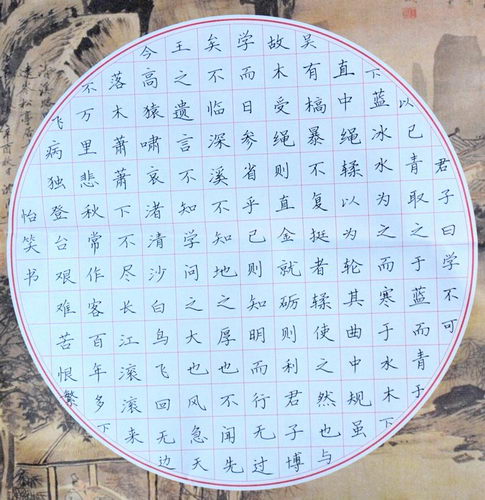 君子曰学不可
以已青取之于蓝而青于
下蓝冰水为之而寒于水木下
直中绳輮以为轮其曲中规虽
吴有槁暴不复挺者輮使之然也与
故木受绳则直金就砺则利君子博
学而日参省乎己则知明而行无过
矣不临深溪不知地之厚也不闻先
王之遗言不知学问之大也风急天
今高猿啸哀渚清沙白鸟飞回无边
落木萧萧下不尽长江滚滚来
不万里悲秋常作客百年多下
飞病独登台艰难苦恨繁
怡笑书